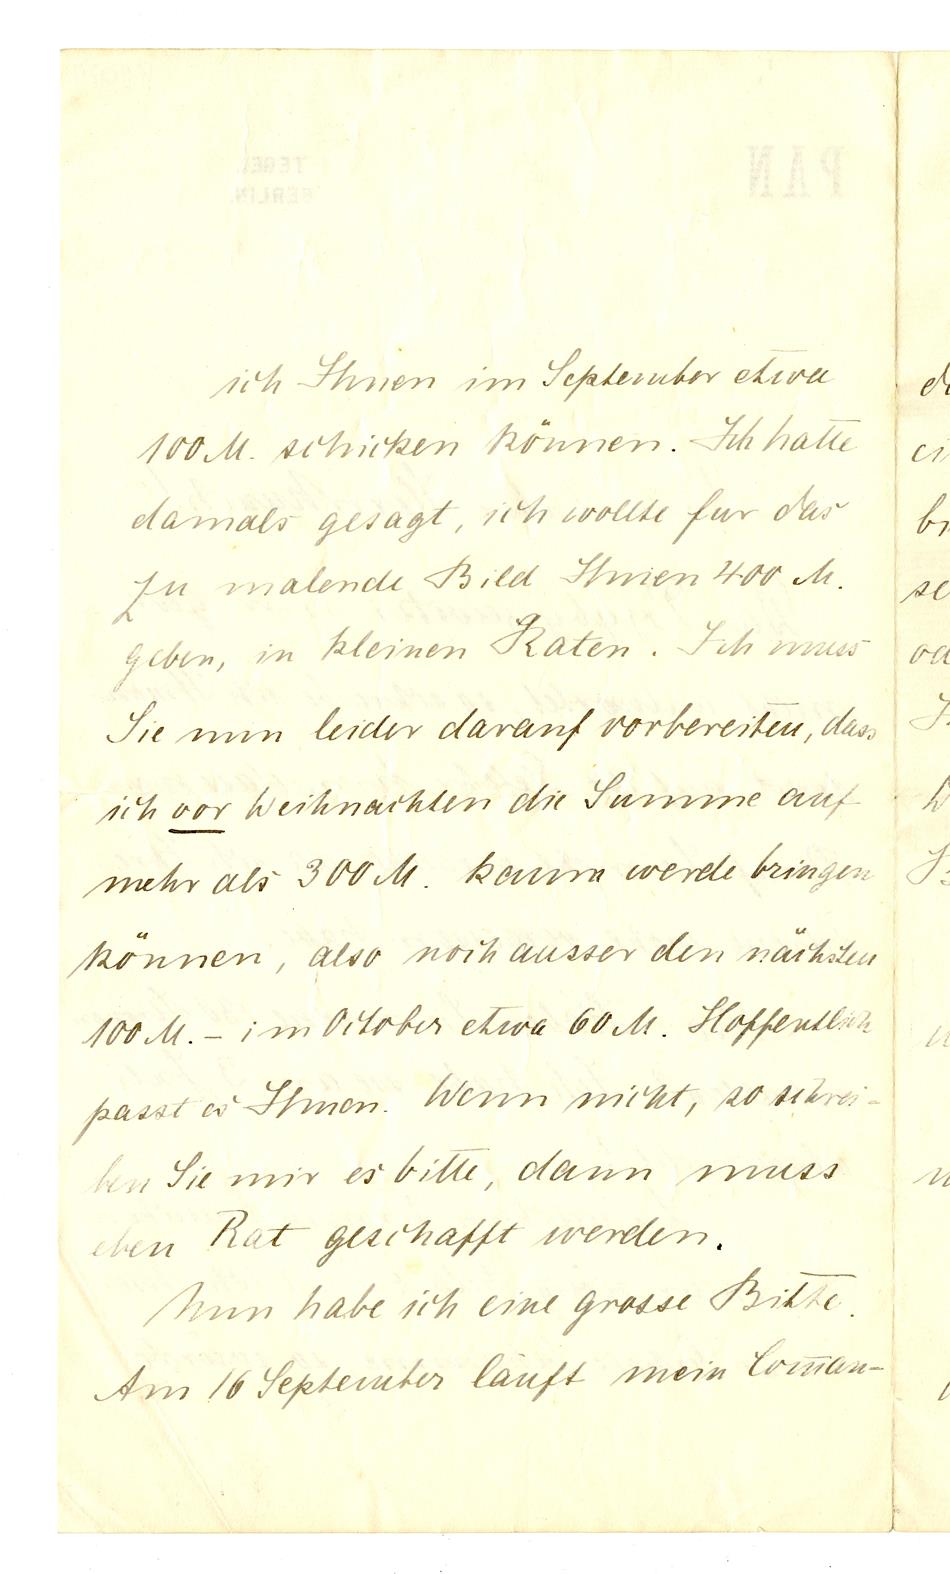 ich Ihnen im September etwa
100 M. schicken können. Ich hatte
damals gesagt, ich wollte fur das
zu malende Bild Ihnen 400 M.
geben, in kleinen Raten. Ich muss
Sie nun leider darauf vorbereiten, dass
ich vor Weihnachten die Summe auf
mehr als 300 M. kaum werde bringen
können, also noch ausser den nächsten
100 M. – im October etwa 60 M. Hoffentlich
passt es Ihnen. Wenn nicht, so schrei-
ben Sie mir es bitte, dann muss
eben Rat geschafft werden.
Nun habe ich eine grosse Bitte.
Am 16 September läuft mein Com̅an-
PAN
TEGEL
BERLIN.